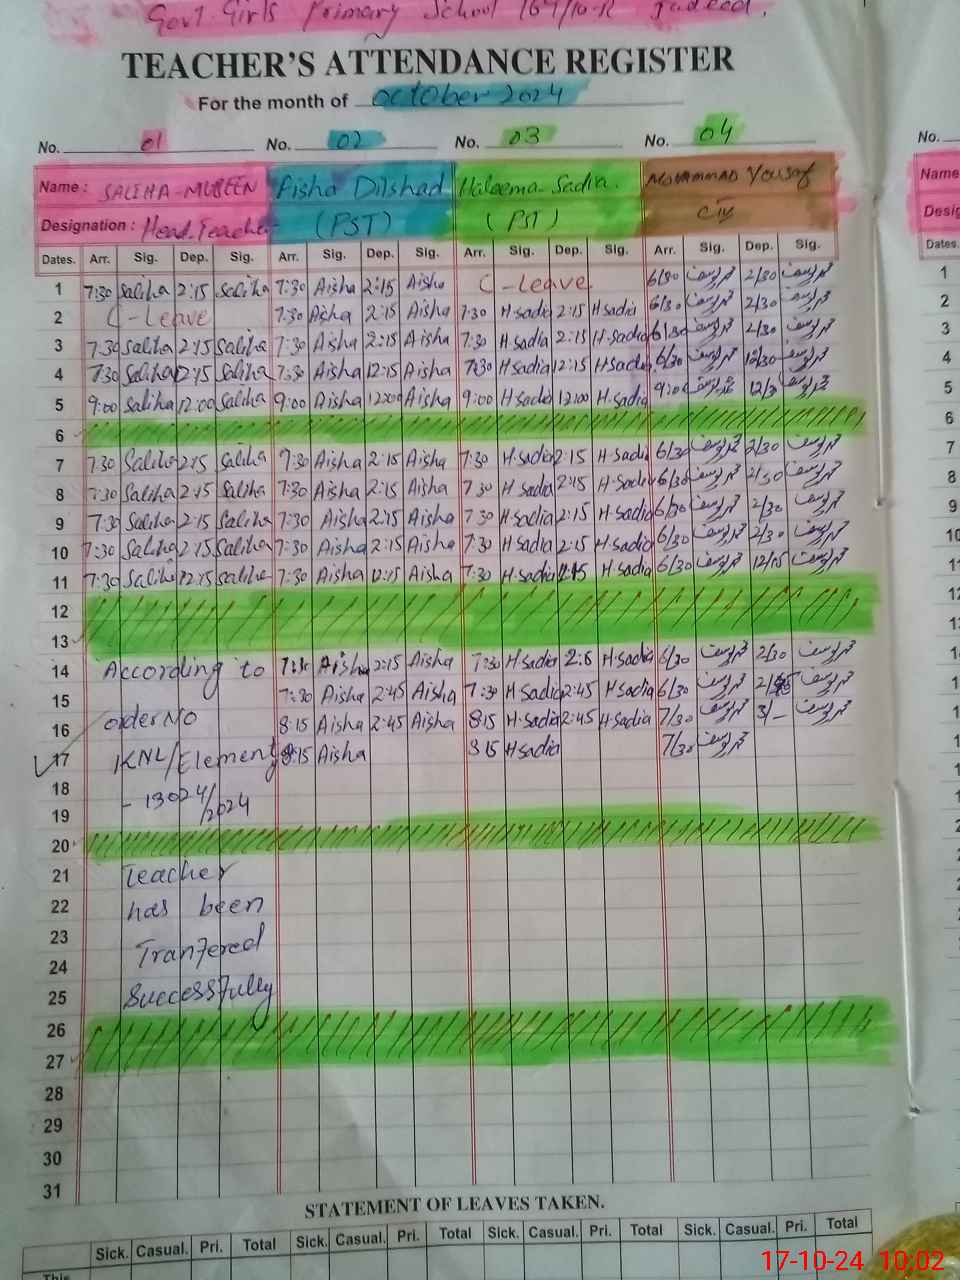 Govt. Girls Primary School 164/10-R
TEACHER'S ATTENDANCE REGISTER
For the month of October 2024
No. 01 No. 02 No. 03 No. 04 No.
Name : SALIHA-MUBEEN Aisha Dilshad Haleema-Sadia. Mohammad Yousaf Name
Designation : Head.Teacher (PST) (PST) CIV Desig
Dates. Arr. Sig. Dep. Sig. Arr. Sig. Dep. Sig. Arr. Sig. Dep. Sig. Arr. Sig. Dep. Sig. Dates.
1 7:30 Saliha 2:15 Saliha 7:30 Aisha 2:15 Aisha C-Leave 6/30 محمد یوسف 2/30 محمد یوسف 1
2 C-Leave 7:30 Aisha 2:15 Aisha 7:30 H.sadia 2:15 H.sadia 6/30 محمد یوسف 2/30 محمد یوسف 2
3 7:30 Saliha 2:15 Saliha 7:30 Aisha 2:15 Aisha 7:30 H.sadia 2:15 H.sadia 6/30 محمد یوسف 2/30 محمد یوسف 3
4 7:30 Saliha 12:15 Saliha 7:30 Aisha 12:15 Aisha 7:30 H.sadia 12:15 H.sadia 6/30 محمد یوسف 12/30 محمد یوسف 4
5 9:00 Saliha 12:00 Saliha 9:00 Aisha 12:00 Aisha 9:00 H.sadia 12:00 H.sadia 9:00 محمد یوسف محمد یوسف 5
6 6
7 7:30 Saliha 2:15 Saliha 7:30 Aisha 2:15 Aisha 7:30 H.sadia 2:15 H.sadia 6/30 محمد یوسف 2/30 محمد یوسف 7
8 7:30 Saliha 2:15 Saliha 7:30 Aisha 2:15 Aisha 7:30 H.sadia 2:15 H.sadia 6/30 محمد یوسف 2/30 محمد یوسف 8
9 7:30 Saliha 2:15 Saliha 7:30 Aisha 2:15 Aisha 7:30 H.sadia 2:15 H.sadia 6/30 محمد یوسف 2/30 محمد یوسف 9
10 7:30 Saliha 2:15 Saliha 7:30 Aisha 2:15 Aisha 7:30 H.sadia 2:15 H.sadia 6/30 محمد یوسف 2/30 محمد یوسف 10
11 7:30 Saliha 12:15 Saliha 7:30 Aisha 12:15 Aisha 7:30 H.sadia 12:15 H.sadia 6/30 محمد یوسف 12/15 محمد یوسف 11
12
13
14 According to 7:30 Aisha 2:15 Aisha 7:30 H.sadia H.sadia 6/30 محمد یوسف 2/30 محمد یوسف
15 7:30 Aisha 2:45 Aisha 7:30 H.sadia 2:45 H.sadia 6/30 محمد یوسف محمد یوسف
16 order No 8:15 Aisha 2:45 Aisha 8:15 H.sadia 2:45 H.sadia 7/30 محمد یوسف 3/- محمد یوسف
17 KNL/Element 8:15 Aisha 8:15 H.sadia 7/30 محمد یوسف
18 - 13024/2024
19
20
21 Teacher
22 has been
23 Tranfered
24
25 Successfully
26
27
28
29
30
31
STATEMENT OF LEAVES TAKEN.
Sick. Casual. Pri. Total Sick. Casual. Pri. Total Sick. Casual. Pri. Total Sick. Casual. Pri. Total
This
17-10-24 10:02